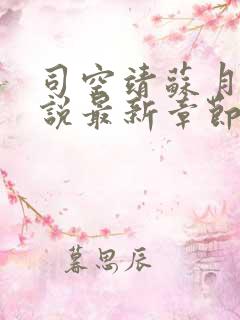 司空靖蘇月
說最新章節
暮思辰